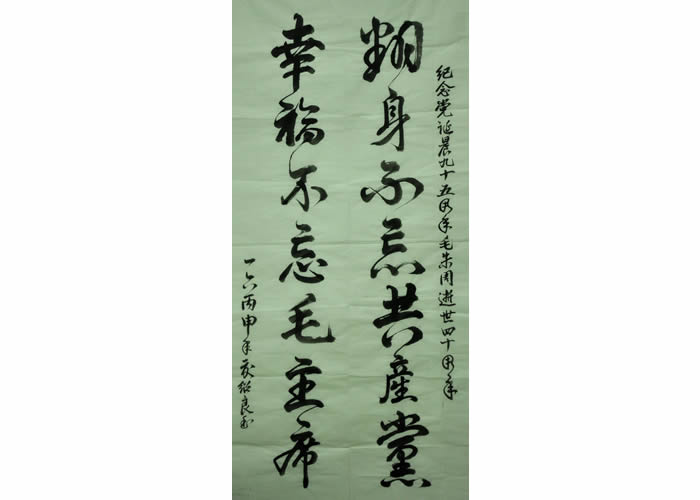 纪念党诞晨九十五周年毛朱周逝世四十周年
翻身不忘共產黨
幸福不忘毛主席
一六丙申年绍良书